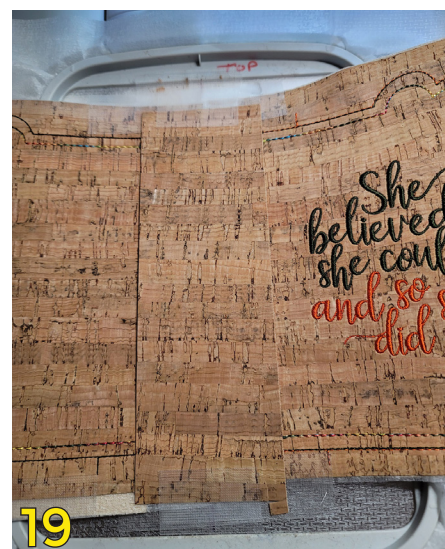 TOP
She
believed
she coul
and so s
did
19